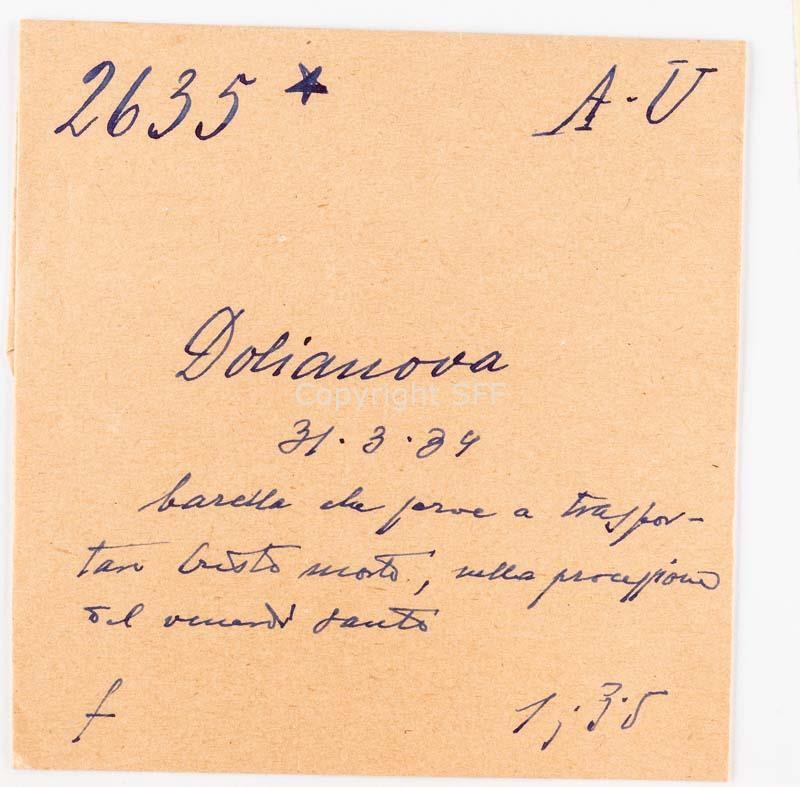 2635 * A-U
Dolianova
Copyright SFF
31.3.34
barella che serve a traspor-
tare Cristo morto, nella processione
del venerdì santo
f 1;3.5